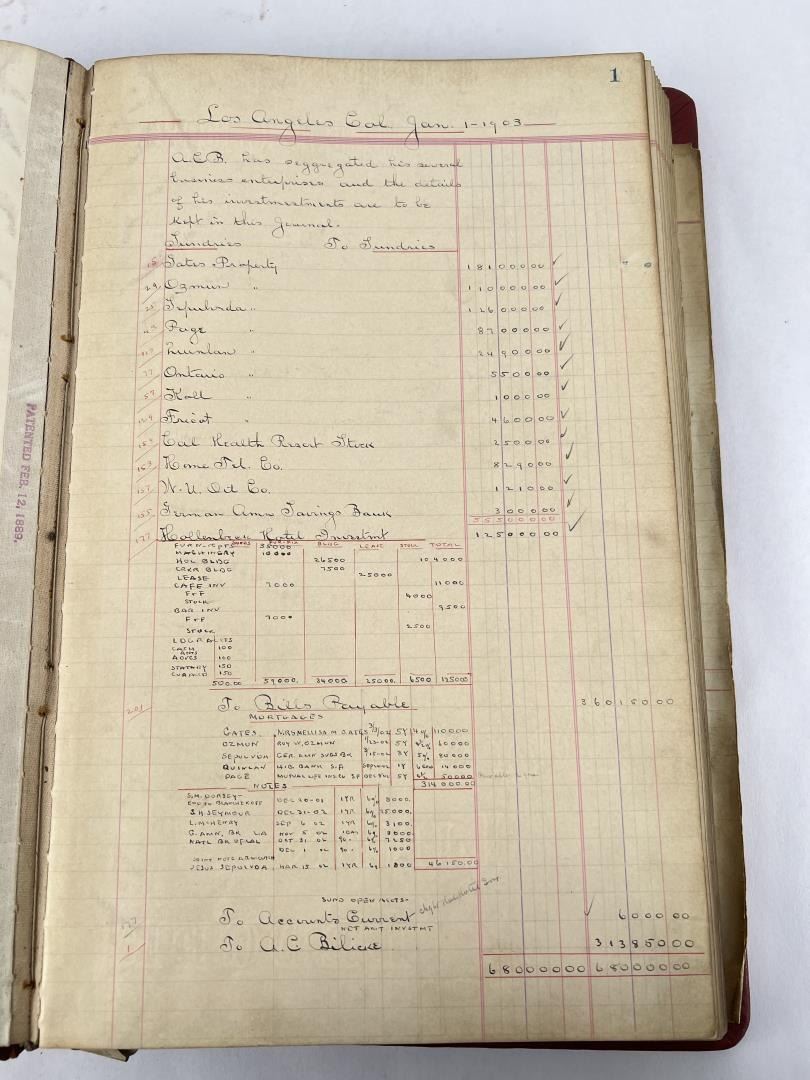 1
Los Angeles Cal. Jan. 1-1903
A.C.B. has seggregated his several
business enterprises and the details
of his investmestments are to be
kept in this Journal.
Sundries To Sundries
15 Gates Property 181 000 00
29 Ozmun " 110 000 00
Sepulveda " 126 000 00
Page " 87 000 00
" 24 900 00
77 Ontario " 5 500 00
57 Koll " 1 000 00
129 Fricot " 4 600 00
Cal Health Resort Stock 2 500 00
163 Home Tel. Co. 8 290 00
157 W.U. Oil Co. 1 210 00
155 German Amn Savings Bank 3 000 00
555 000 00
177 Hollenbeck Hotel Investmt 125 000 00
BLDG LEASE STOCK TOTAL
FURN 35000
MACHINERY 10000
HOL BLDG 26500 104000
CRKR BLDG 7500
LEASE 25000
CAFE INV 7000 11000
F+F
STOCK 4000
BAR INV 9500
F+F 7000
STOCK 2500
CASH 100
100
STATARY 150
150
500.00 59000. 34000 25000. 6500 125000
201 To Bills Payable 360 150 00
MORTGAGES
GATES, MRS MELLISA M. GATES 5Y 4% 110000
OZMUN ROY W. OZMUN 5Y 60000
SEPULVDA GER AMN SVGS BK 3Y 80000
QUINLAN HIB BANK S.F. 1Y 14000
PAGE MUTUAL LIFE INS CO S.F. 5Y 50000
314000.00
NOTES
S.M. DORSEY- DEC 30-01 1YR 6% 8000.
S H SEYMOUR DEC 31-02 1YR 6% 25000.
L. MCHENRY SEP 6 02 1YR 6% 3100.
G. AMN, BK LA NOV 5 02
NATL BK OF CAL OCT 31 02 90 6% 7250
DEC 1 02 90 6% 1000
JOINT NOTE
JESUS SEPULVDA MAR 15 02 1YR 6% 1800 46150.00
SUND OPEN ACCTS-
To Accounts Current 6 000 00
NET AMT INVSTMT
1 To A.C Bilicke 313 850 00
680 000 00 680 000 00
PATENTED FEB. 12, 1889.